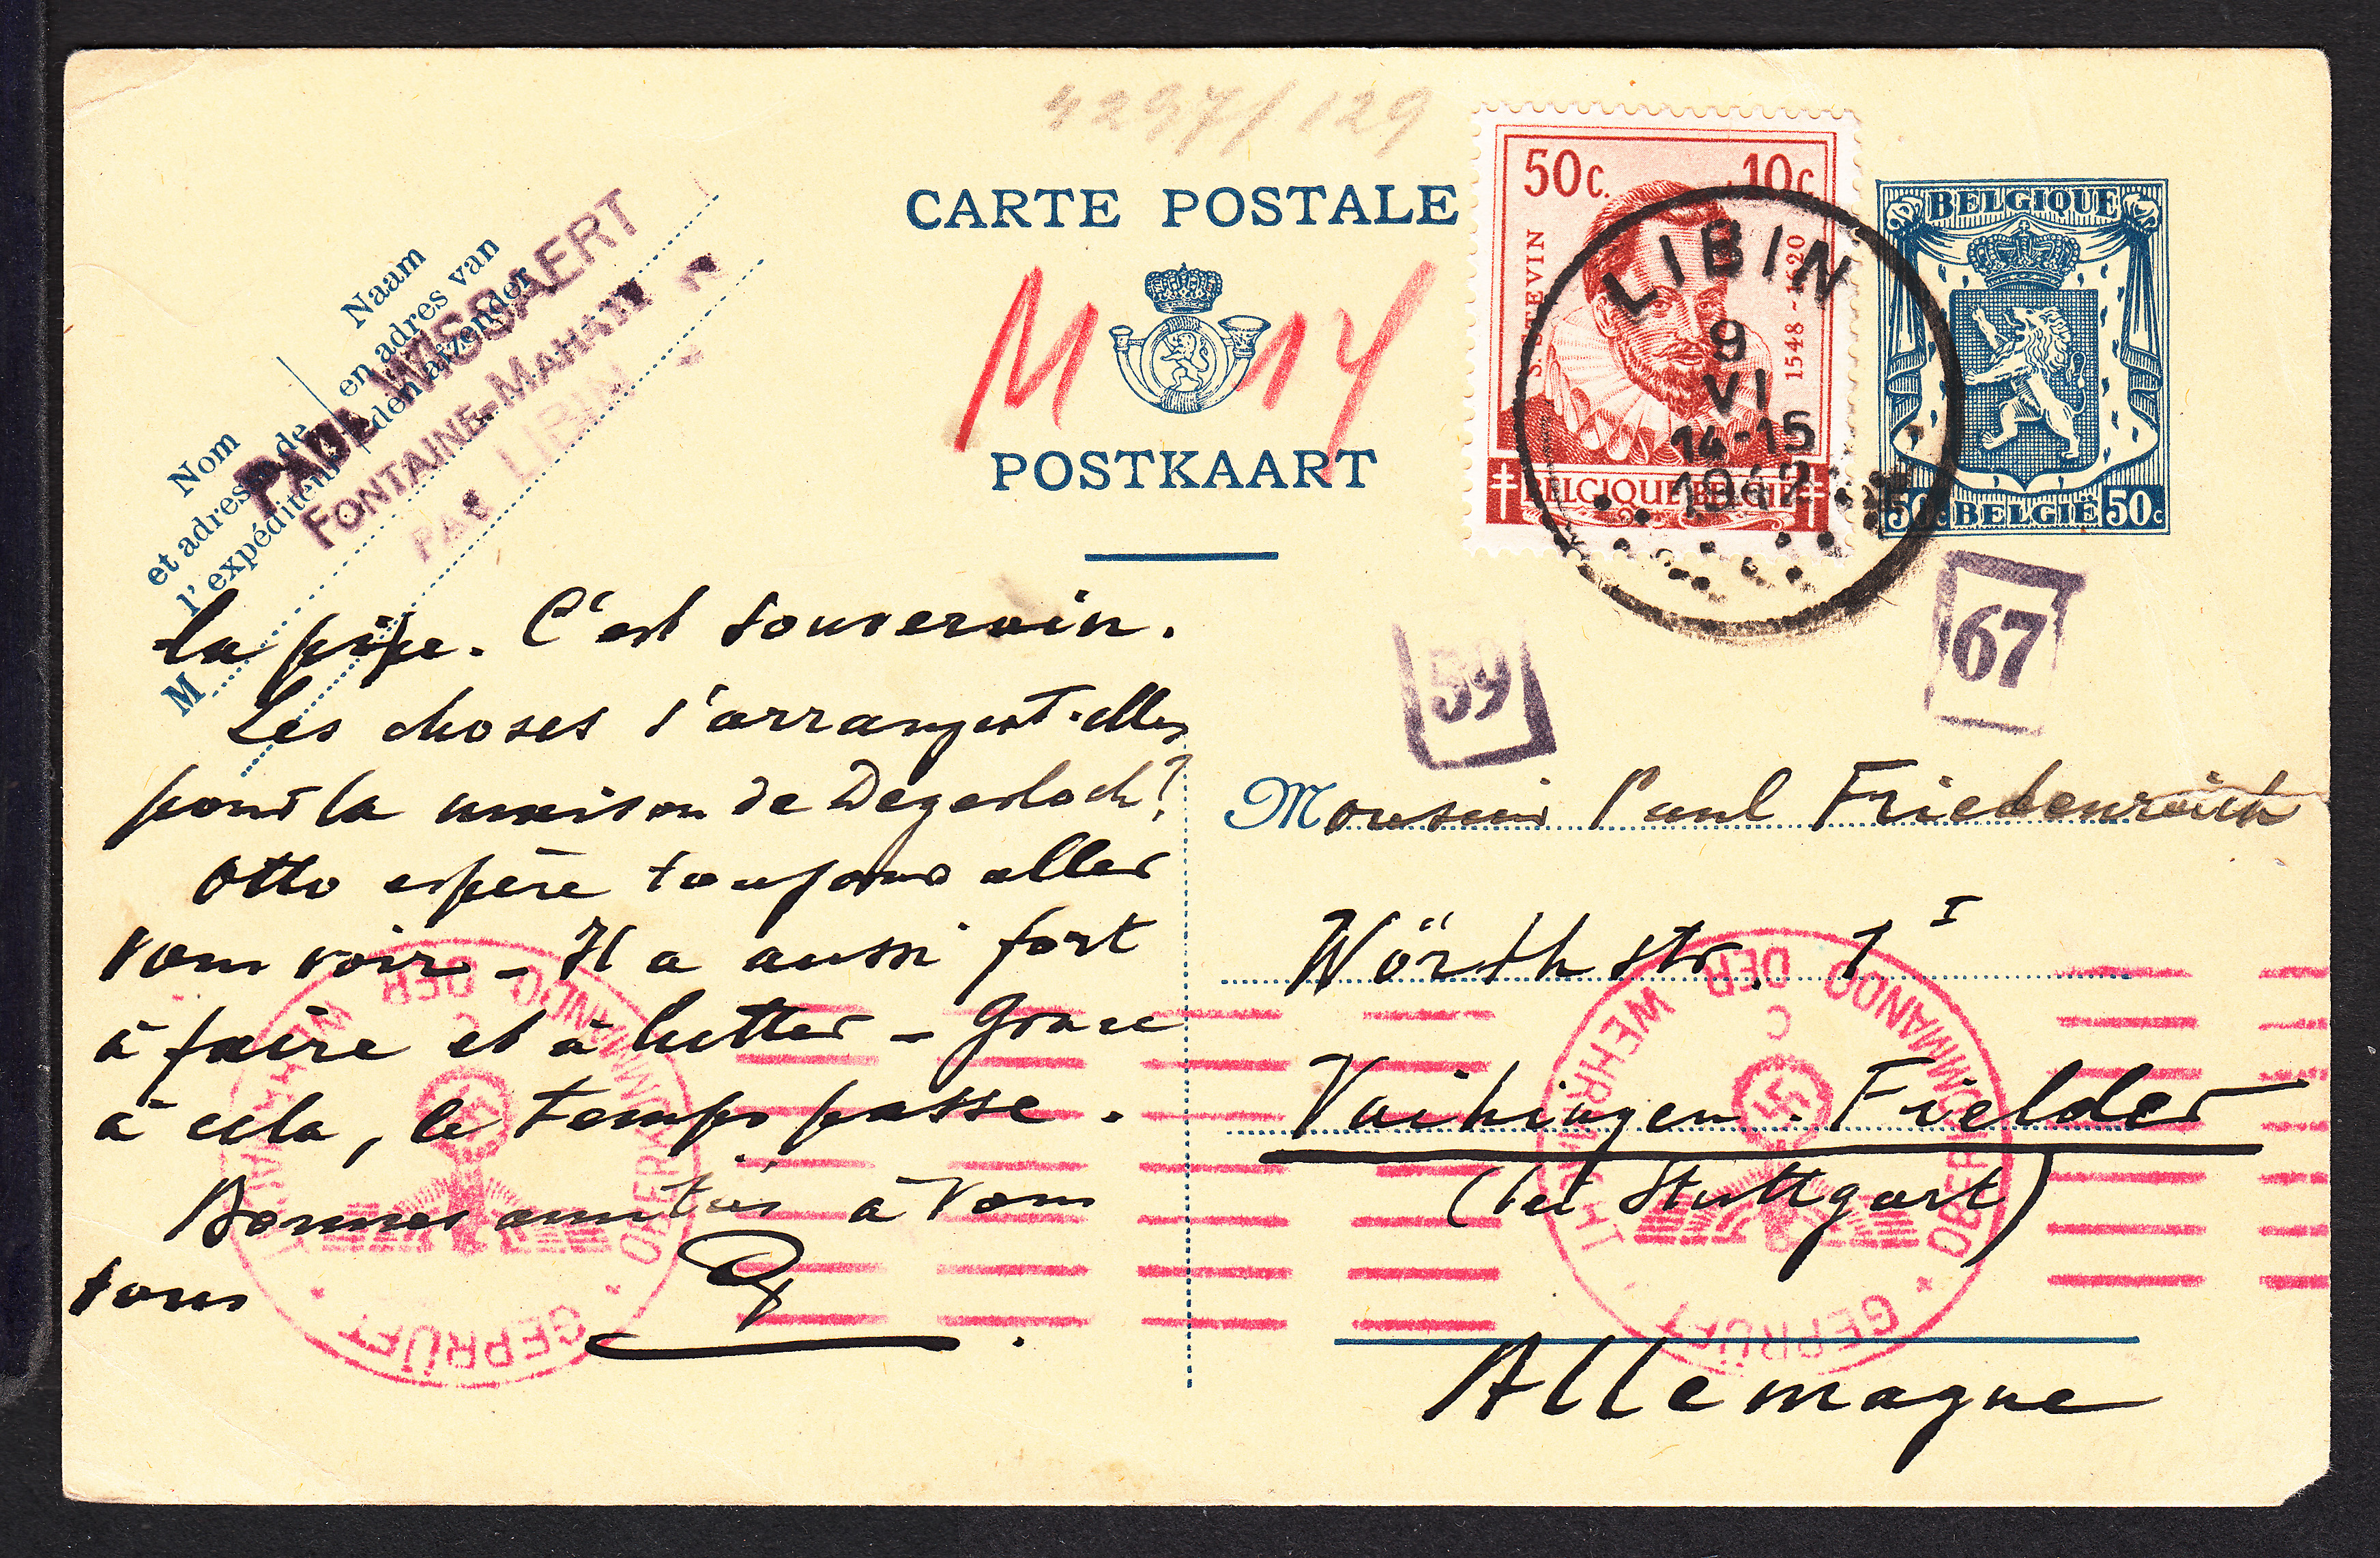 4297/129
CARTE POSTALE
POSTKAART
M 14
Naam
en adres van
den afzender
Nom
et adresse de
l'expéditeur
M
PAUL WISSAERT
FONTAINE-MAHAUT
PAR LIBIN
50c. 10c
S. STEVIN
1548-1620
BELGIQUE BELGIË
LIBIN
9
VI
14-15
1942
BELGIQUE
50c BELGIË 50c
59
67
la pipe. C'est souverain.
Les choses s'arrangent-elles
pour la maison de Degerloch?
Otto espère toujours aller
vous voir - Il a aussi fort
à faire et à lutter - Grace
à cela, le temps passe.
Bonnes amitiés à vous
tous
Monsieur Paul Friedenreich
Wörthstr. 1 I
Vaihingen-Fielder
(bei Stuttgart)
Allemagne
OBERKOMMANDO DER WEHRMACHT
C
GEPRÜFT
OBERKOMMANDO DER WEHRMACHT
C
GEPRÜFT